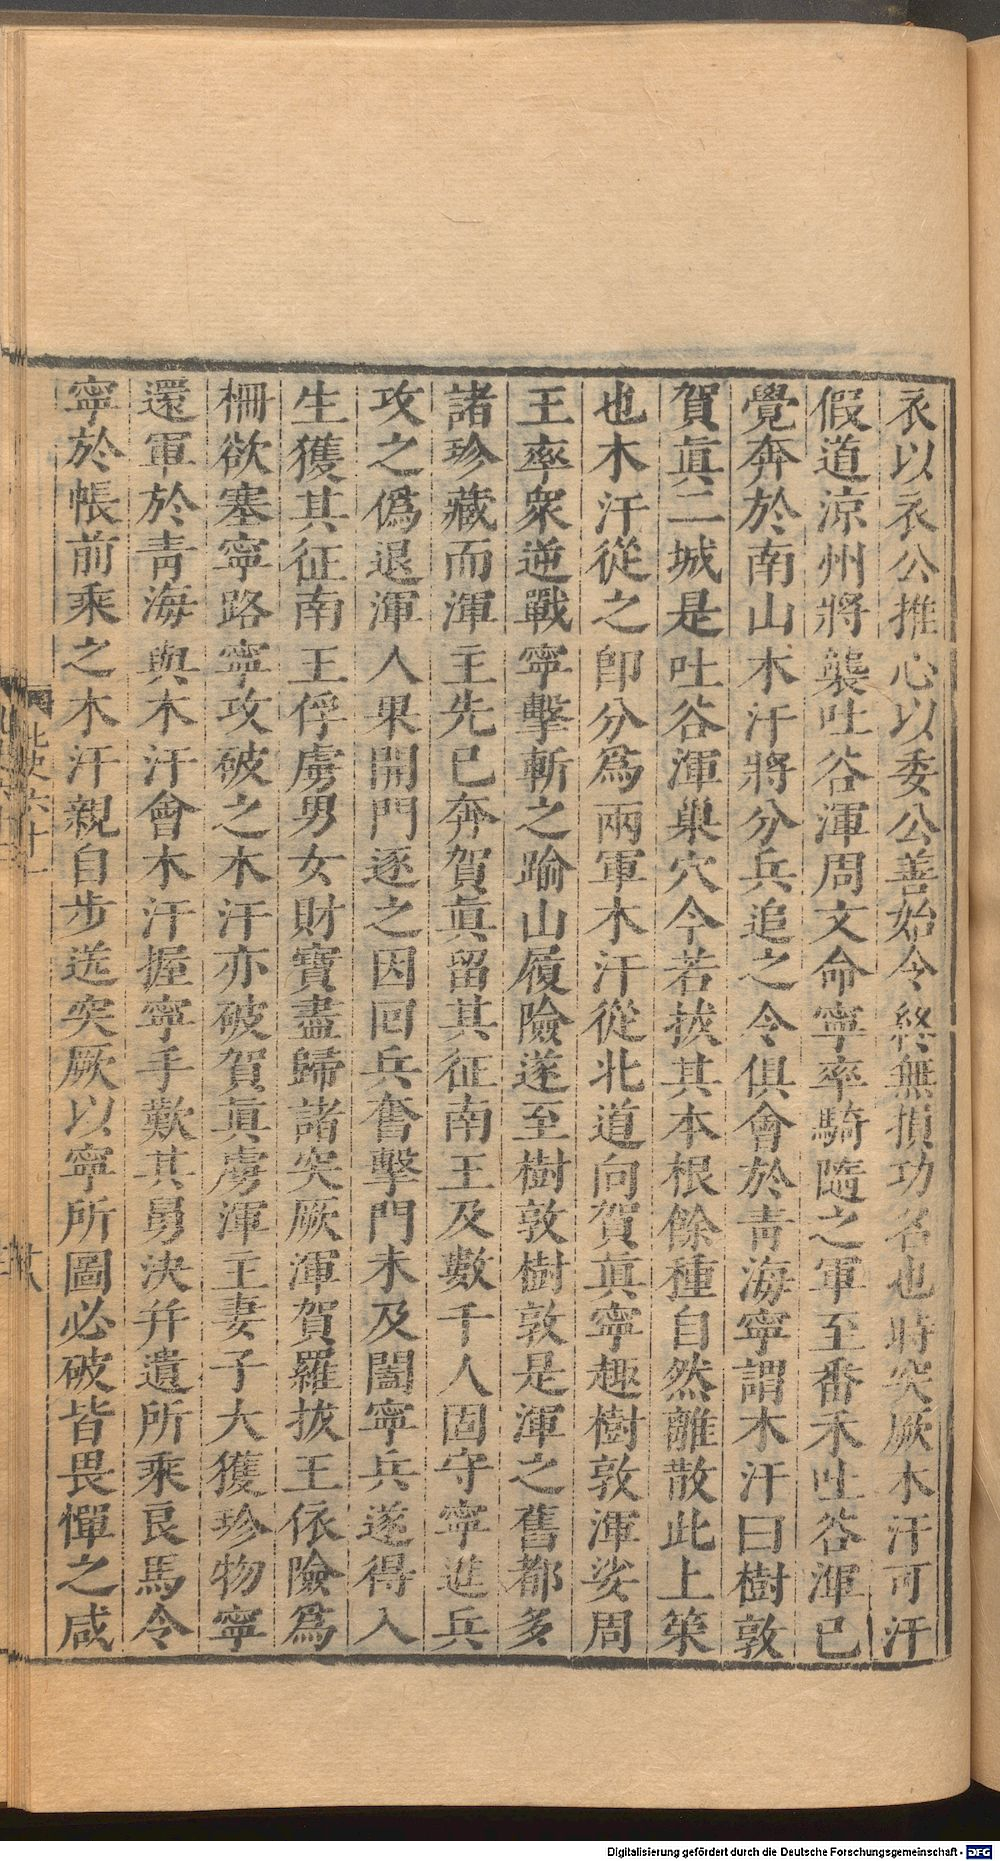 衣以衣公推心以委公善始令終無損功名也時突厥木汗可汗
假道涼州將襲吐谷渾周文命寧率騎隨之軍至番禾吐谷渾已
覺奔於南山木汗將分兵追之令俱會於靑海寧謂木汗曰樹敦
賀眞二城是吐谷渾巢穴今若拔其本根餘種自然離散此上策
也木汗從之卽分爲兩軍木汗從北道向賀眞寧趣樹敦渾娑周
王率衆逆戰寧擊斬之踰山履險遂至樹敦樹敦是渾之舊都多
諸珍藏而渾主先已奔賀眞留其征南王及數千人固守寧進兵
攻之僞退渾人果開門逐之因回兵奮擊門未及闔寧兵遂得入
生獲其征南王俘虜男女財寶盡歸諸突厥渾賀羅拔王依險爲
柵欲塞寧路寧攻破之木汗亦破賀眞虜渾主妻子大獲珍物寧
還軍於靑海與木汗會木汗握寧手歎其勇決幷遺所乘良馬令
寧於帳前乘之木汗親自步送突厥以寧所圖必破皆畏憚之咸
北史六十一
Digitalisierung gefördert durch die Deutsche Forschungsgemeinschaft - DFG